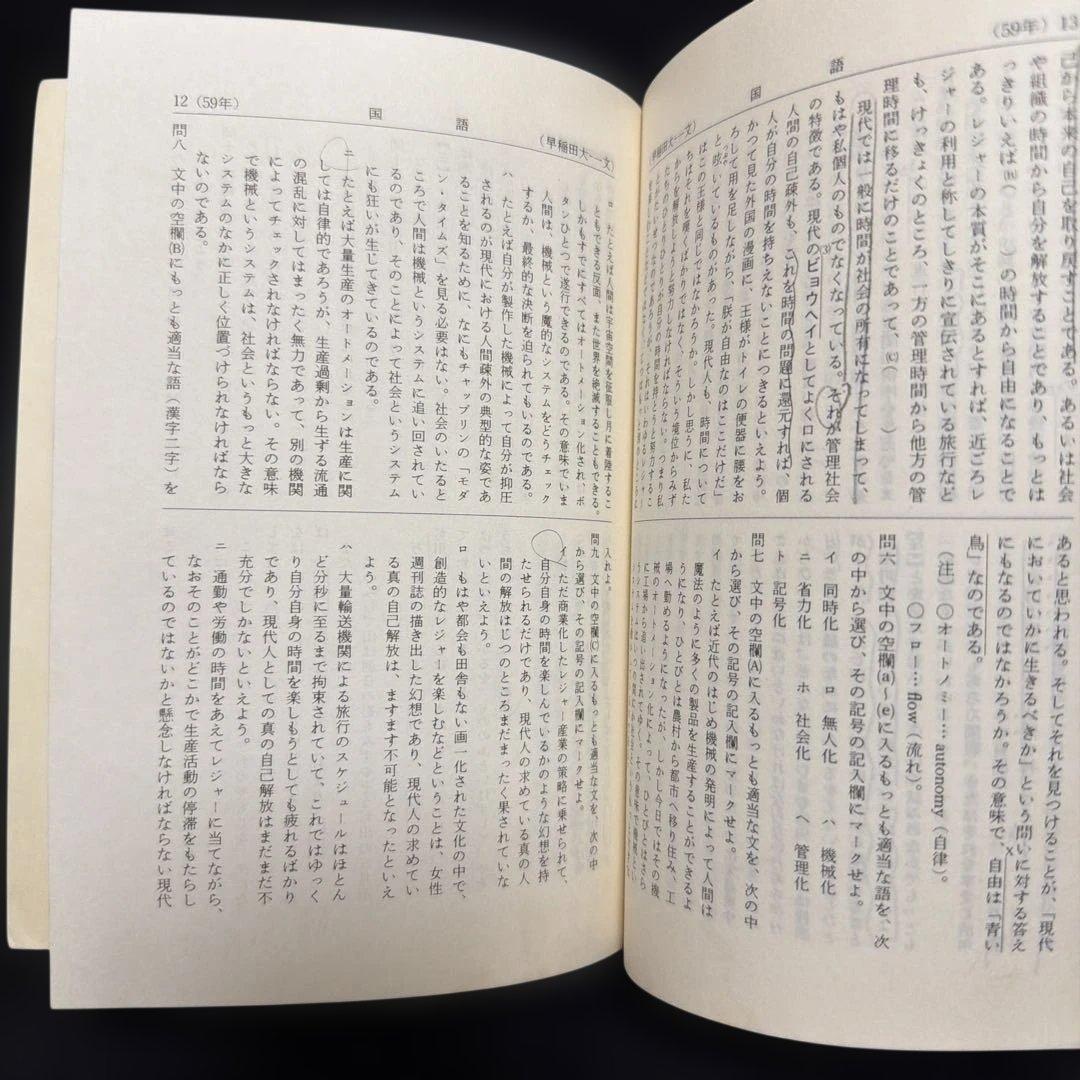 (59年) 13
国　語
(早稲田大―一文)
己から本来の自己を取り戻すことである。あるいは社会
や組織の時間から自分を解放することであり、もっとは
っきりいえば(b)（　　）の時間から自由になることで
ある。レジャーの本質がそこにあるとすれば、近ごろレ
ジャーの利用と称してしきりに宣伝されている旅行など
も、けっきょくのところ、一方の管理時間から他方の管
理時間に移るだけのことであって、(C)（　　）
現代では一般に時間が社会の所有になってしまって、
もはや私個人のものでなくなっている。それが管理社会
の特徴である。現代のビョウヘイとしてよく口にされる
人間の自己疎外も、これを時間の問題に還元すれば、個
人が自分の時間を持ちえないことにつきるといえよう。
かつて見た外国の漫画に、王様がトイレの便器に腰をお
ろして用を足しながら、「朕が自由なのはここだけだ」
と呟いているものがあった。現代人も、時間について
はこの王様と同じではなかろうか。しかし思うに、私た
ちはそれを嘆くばかりではなく、そういう境位からみず
からを解放しようと努力しなければならない。つまり私
たちのひとりひとりが自分の時間を持とうと努力するこ
あると思われる。そしてそれを見つけることが、「現代
においていかに生きるべきか」という問いに対する答え
にもなるのではなかろうか。その意味で、自由は「青い
鳥」なのである。
（注）　〇オートノミー… autonomy（自律）。
〇フロー… flow（流れ）。
問六　文中の空欄(a)～(e)に入るもっとも適当な語を、次
の中から選び、その記号の記入欄にマークせよ。
イ　同時化　ロ　無人化　ハ　機械化
ニ　省力化　ホ　社会化　ヘ　管理化
ト　記号化
問七　文中の空欄(A)に入るもっとも適当な文を、次の中
から選び、その記号の記入欄にマークせよ。
イ　たとえば近代のはじめ機械の発明によって人間は
魔法のように多くの製品を生産することができるよ
うになり、ひとびとは農村から都市へ移り住み、工
場へ勤めるようになったが、しかし今日ではその機
械のオートメーション化によって、ひとびとはさら
に工場から追い出されてゆく。その意味で
12 (59年)
国　語
(早稲田大―一文)
ロ　たとえば人間は宇宙空間を征服し月に着陸するこ
ともできる反面、また世界を絶滅することもできる。
しかもすでにすべてはオートメーション化され、ボ
タンひとつで遂行できるのである。その意味でいま
人間は、機械という魔的なシステムをどうチェック
するか、最終的な決断を迫られてもいるのである。
ハ　たとえば自分が製作した機械によって自分が抑圧
されるのが現代における人間疎外の典型的な姿であ
ることを知るために、なにもチャップリンの「モダ
ン・タイムズ」を見る必要はない。社会のいたると
ころで人間は機械というシステムに追い回されてい
るのであり、そのことによって社会というシステム
にも狂いが生じてきているのである。
ニ　たとえば大量生産のオートメーションは生産に関
しては自律的であろうが、生産過剰から生ずる流通
の混乱に対してはまったく無力であって、別の機関
によってチェックされなければならない。その意味
で機械というシステムは、社会というもっと大きな
システムのなかに正しく位置づけられなければなら
ないのである。
問八　文中の空欄(B)にもっとも適当な語（漢字二字）を
入れよ。
問九　文中の空欄(C)に入るもっとも適当な文を、次の中
から選び、その記号の記入欄にマークせよ。
イ　ただ商業化したレジャー産業の策略に乗せられて、
自分自身の時間を楽しんでいるかのような幻想を持
たせられるだけであり、現代人の求めている真の人
間の解放はじつのところまだまったく果されていな
いといえよう。
ロ　もはや都会も田舎もない画一化された文化の中で、
創造的なレジャーを楽しむなどということは、女性
週刊誌の描き出した幻想であり、現代人の求めてい
る真の自己解放は、ますます不可能となったといえ
よう。
ハ　大量輸送機関による旅行のスケジュールはほとん
ど分秒に至るまで拘束されていて、これではゆっく
り自分自身の時間を楽しもうとしても疲れるばかり
であり、現代人としての真の自己解放はまだまだ不
充分でしかないといえよう。
ニ　通勤や労働の時間をあえてレジャーに当てながら、
なおそのことがどこかで生産活動の停滞をもたらし
ているのではないかと懸念しなければならない現代